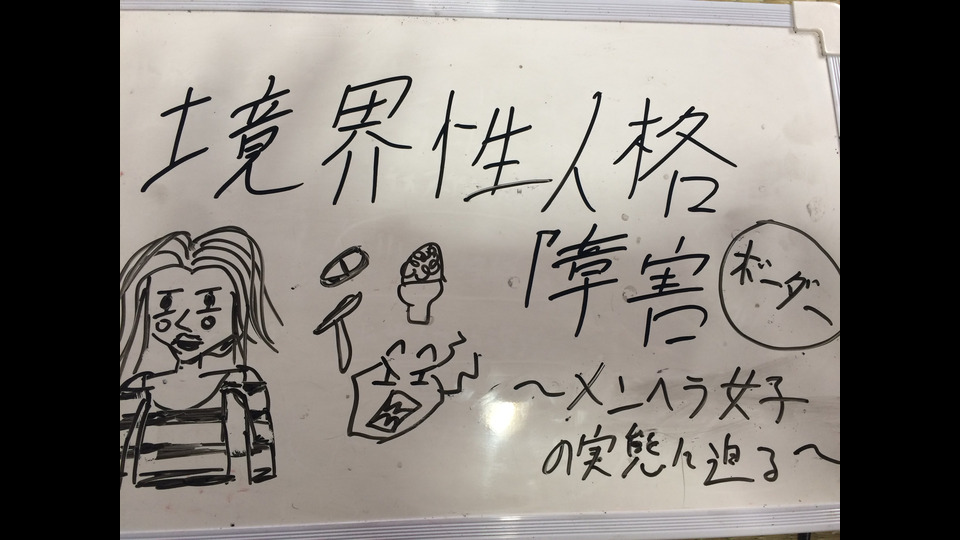 境界性人格
障害
ボーダー
〜メンヘラ女子
の実態に迫る〜